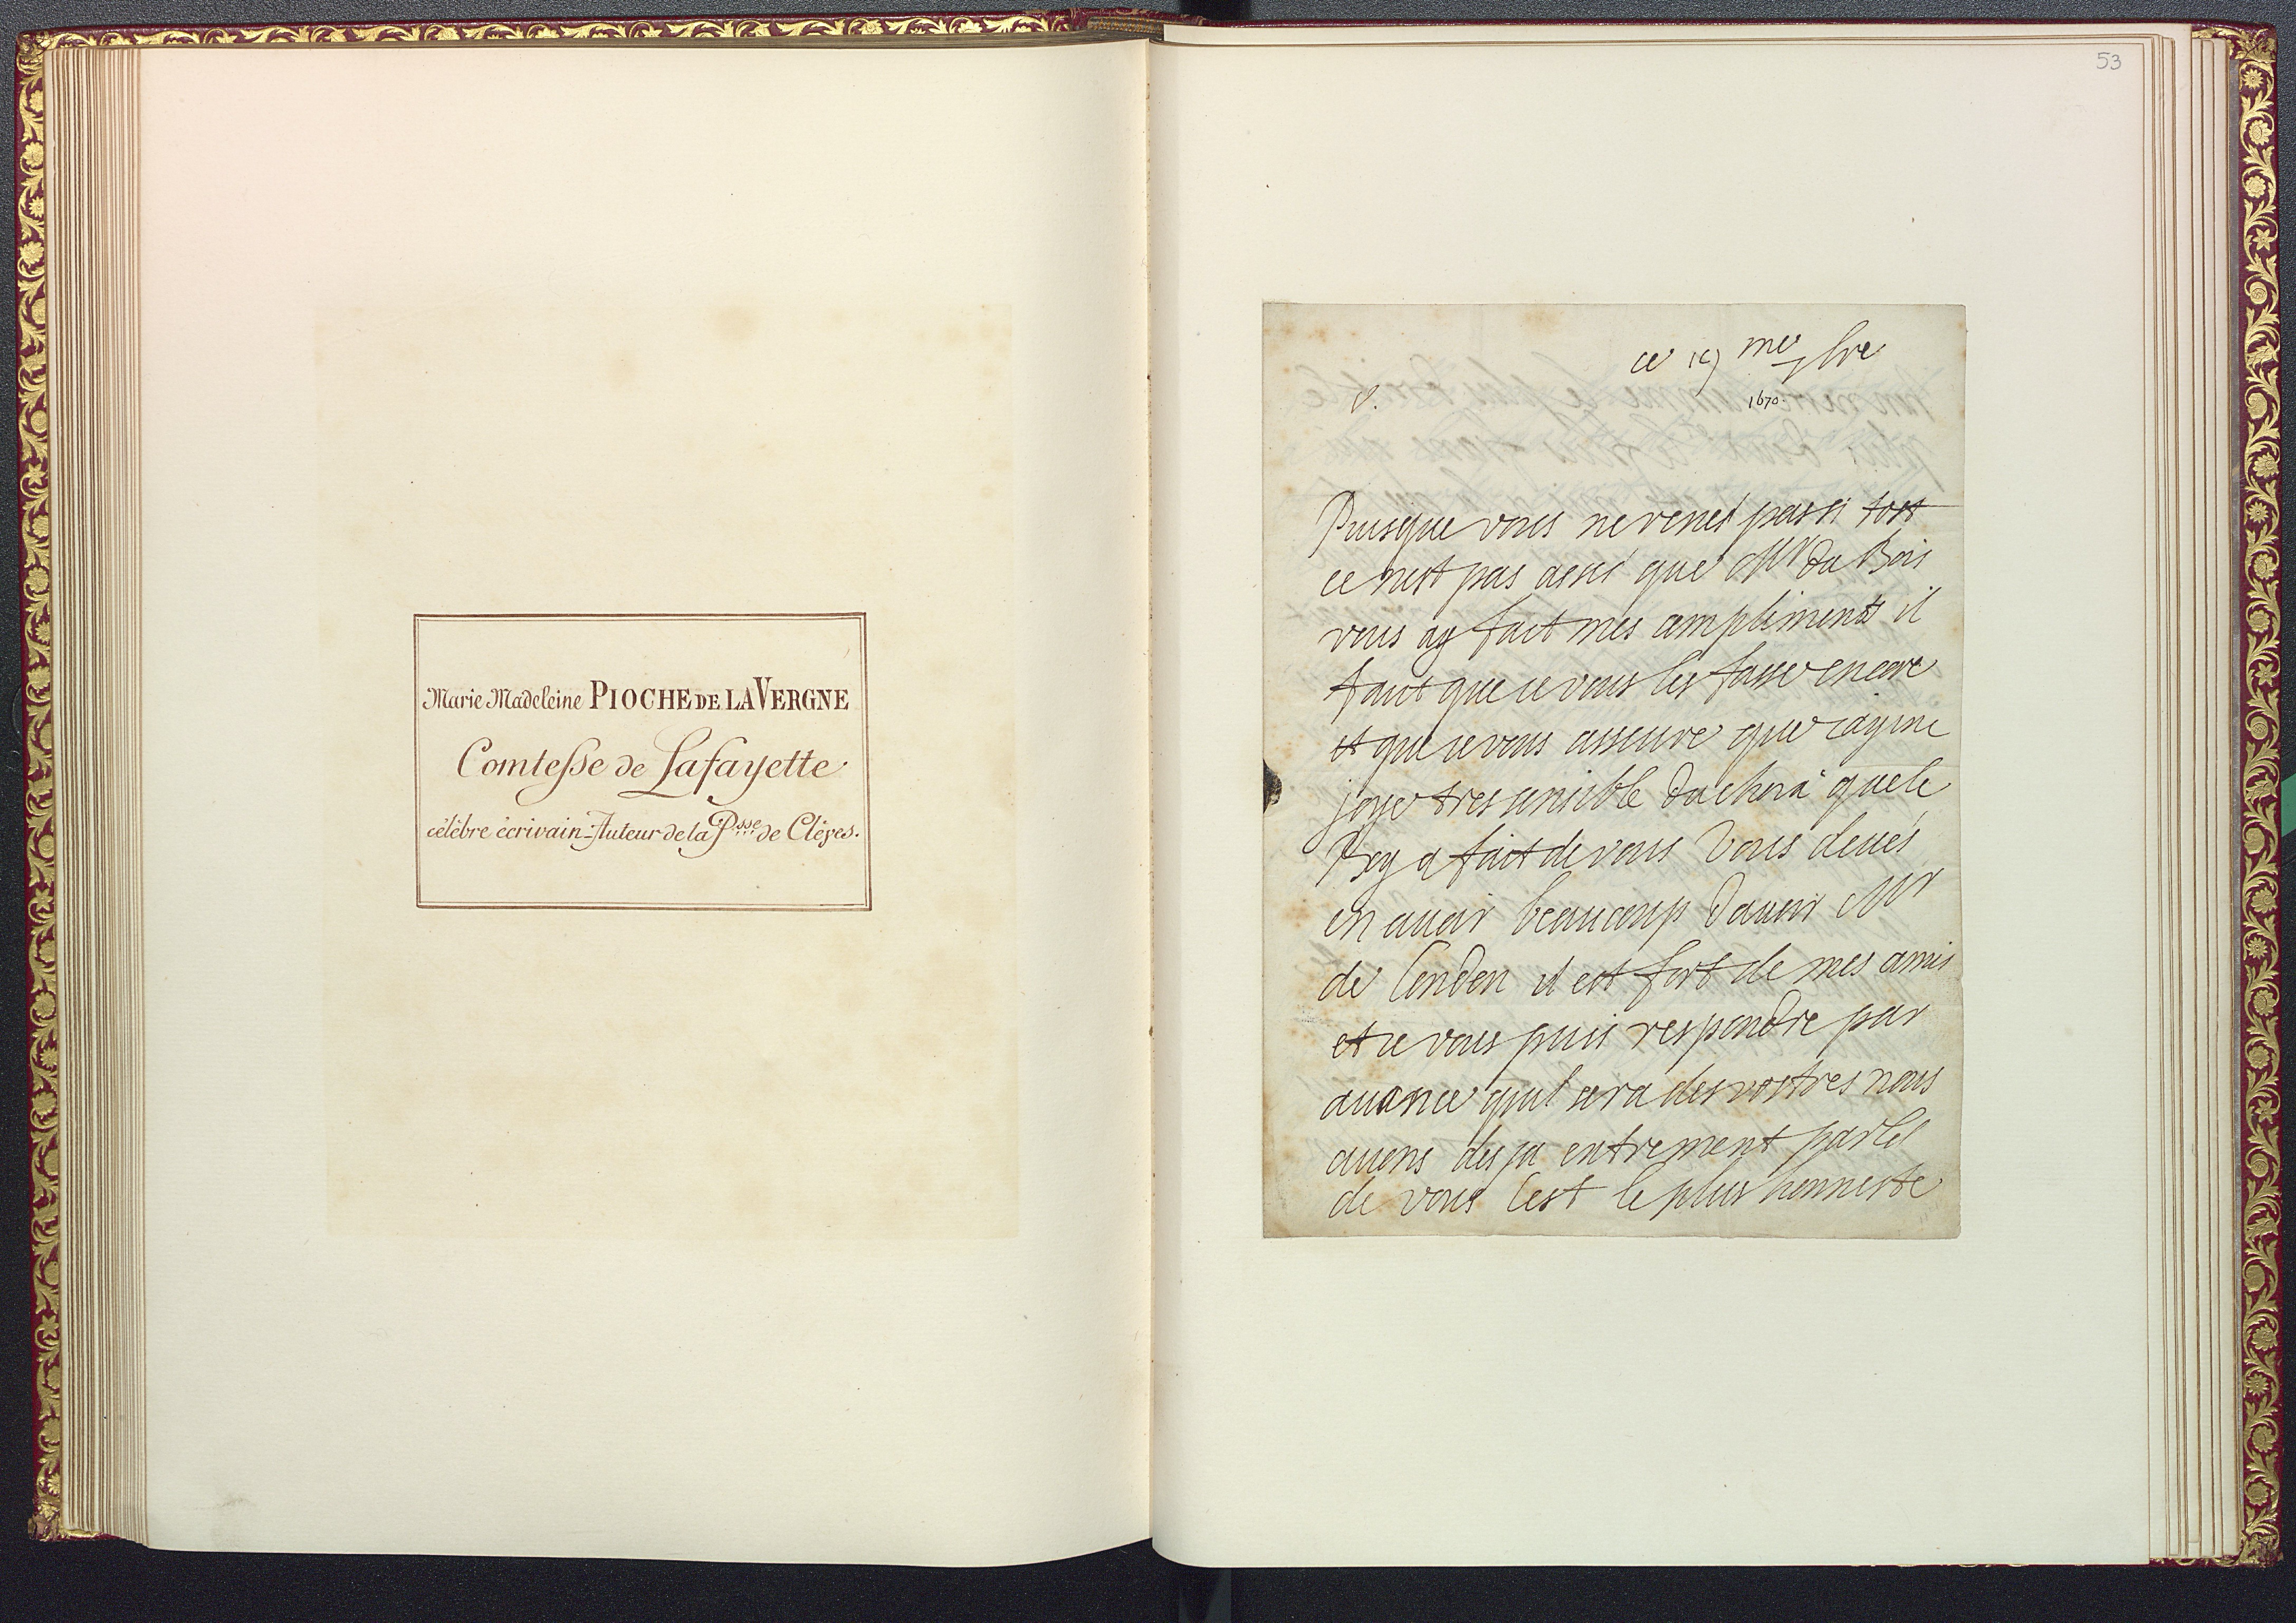 Marie Madeleine PIOCHE DE LA VERGNE
Comtesse de Lafayette
célèbre écrivain - Auteur de la Psse de Clèves.
53
ce 19 me 7bre
1670.
Puisque vous ne venes pas si tost
ce nest pas assés que Mr du Bois
vous ay fait mes compliments il
faut que ie vous les fasse encore
et que ie vous asseure que iay une
joye tres sensible du choix que le
Roy a fait de vous Vous deués
en auoir beaucoup dauoir Mr
de Condon il est fort de mes amis
et ie vous puis respondre par
auance quil sera des vostres nous
auons desja entrement parlés
de vous Cest le plus honneste